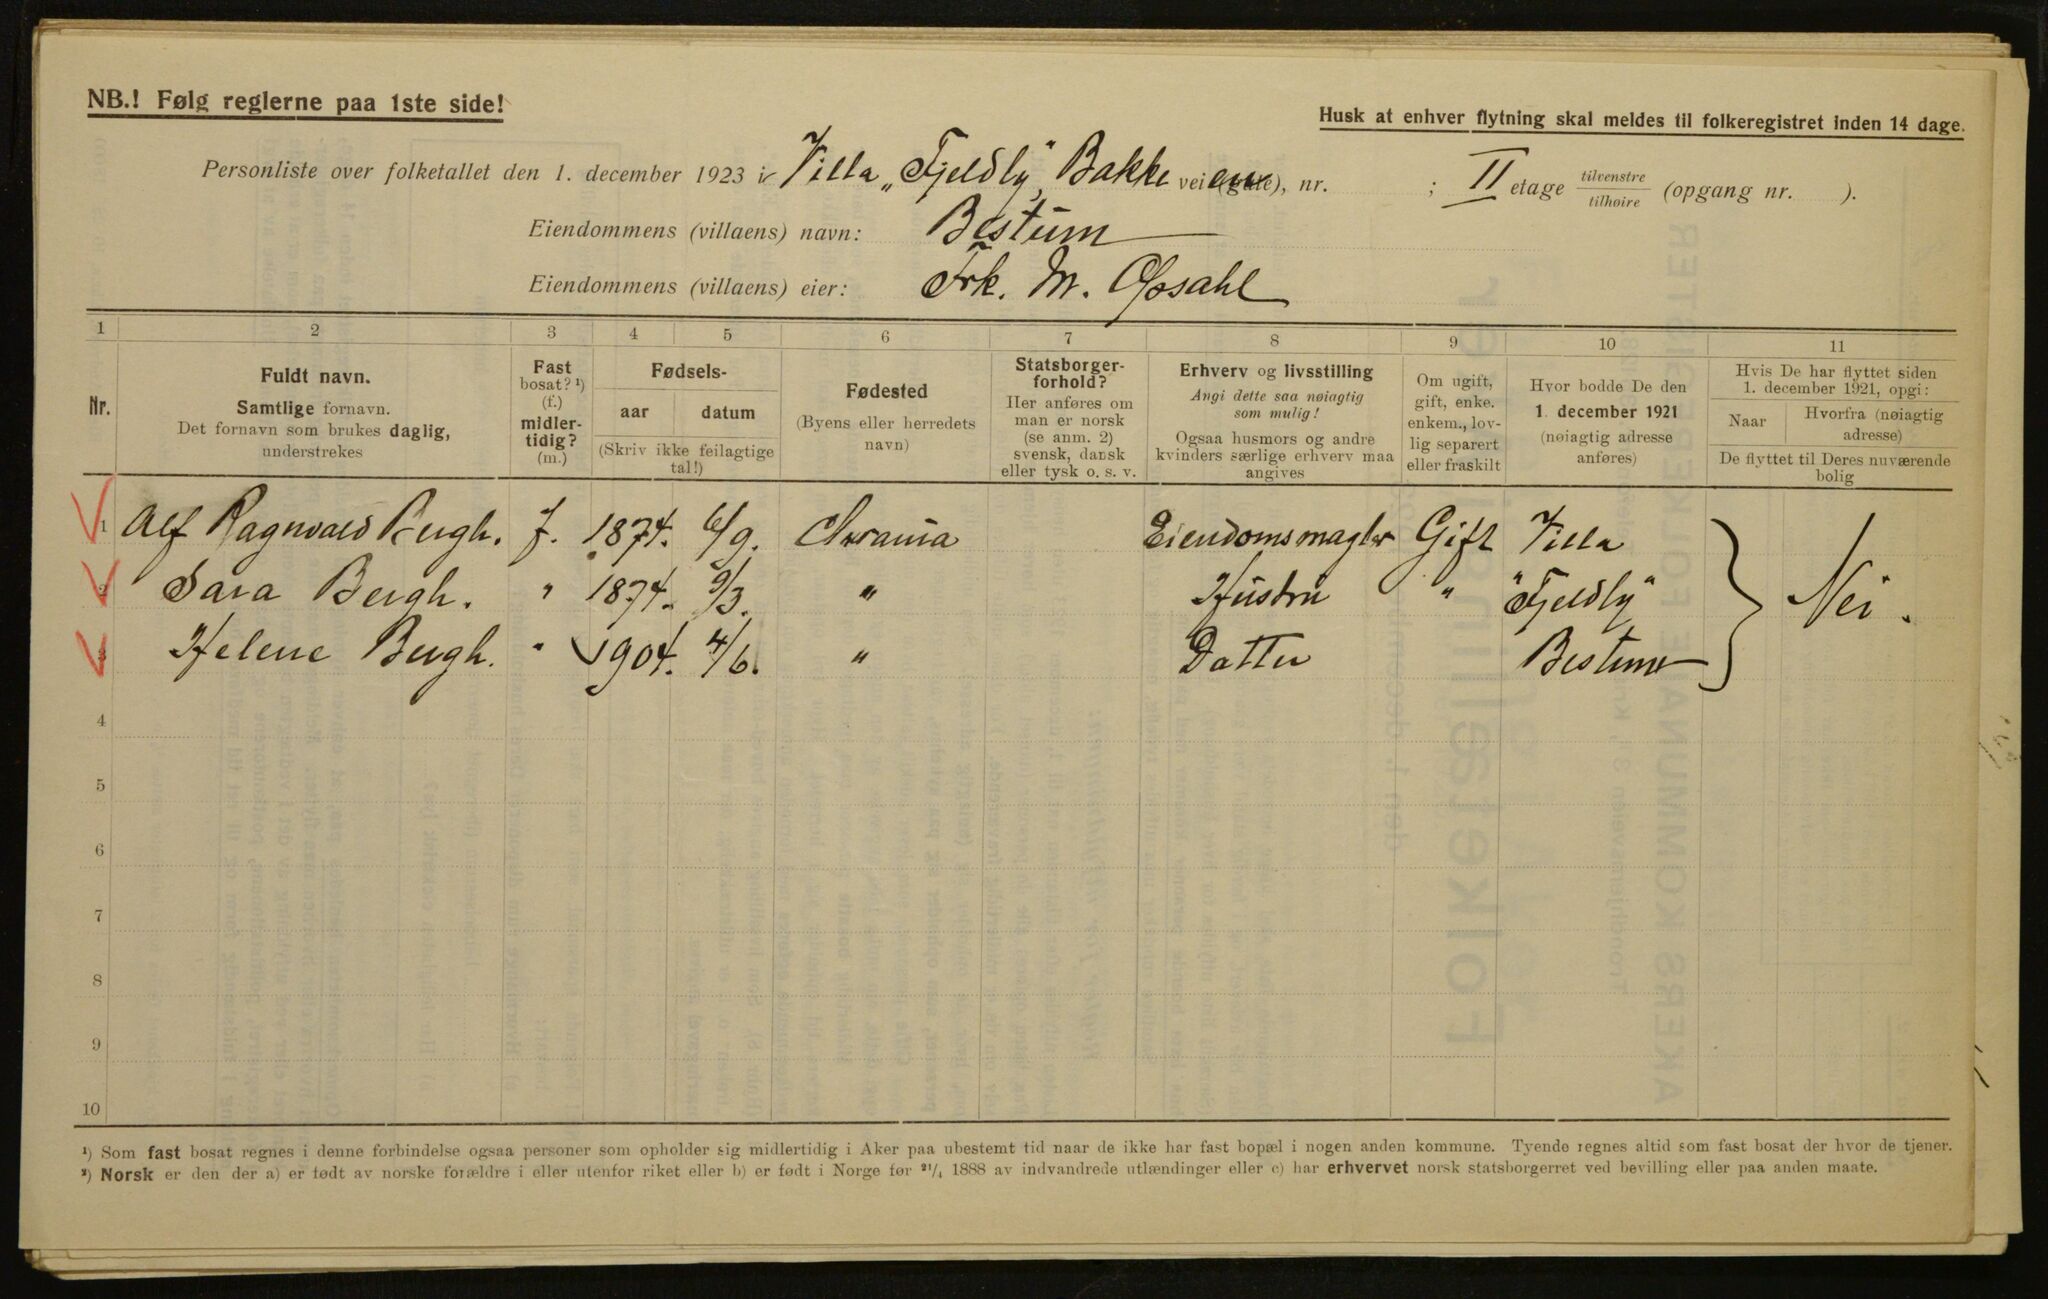 NB.! Følg reglerne paa 1ste side!
Husk at enhver flytning skal meldes til folkeregistret inden 14 dage.
Personliste over folketallet den 1. december 1923 i Villa „Fjeldly", Bakke veien (gate), nr. ; II etage tilvenstre tilhøire (opgang nr. ).
Eiendommens (villaens) navn: Bestum
Eiendommens (villaens) eier: Frk. M. Opsahl
1 2 3 4 5 6 7 8 9 10 11
Nr.
Fuldt navn.
Samtlige fornavn.
Det fornavn som brukes daglig,
understrekes
Fast
bosat? ¹)
(f.)
midler-
tidig?
(m.)
Fødsels-
aar datum
(Skriv ikke feilagtige
tal!)
Fødested
(Byens eller herredets
navn)
Statsborger-
forhold?
Her anføres om
man er norsk
(se anm. 2)
svensk, dansk
eller tysk o. s. v.
Erhverv og livsstilling
Angi dette saa nøiagtig
som mulig!
Ogsaa husmors og andre
kvinders særlige erhverv maa
angives
Om ugift,
gift, enke.
enkem., lov-
lig separert
eller fraskilt
Hvor bodde De den
1. december 1921
(nøiagtig adresse
anføres)
Hvis De har flyttet siden
1. december 1921, opgi:
Naar
Hvorfra (nøiagtig
adresse)
De flyttet til Deres nuværende
bolig
1 Alf Ragnvald Bergh. f. 1874. 6/9. Chrania Eiendomsmagler Gift Villa
2 Sara Bergh. " 1874. 9/3. " Hustru " "Fjeldly" Nei.
3 Helene Bergh. " 1904. 4/6. " Datter Bestum
4
5
6
7
8
9
10
¹) Som fast bosat regnes i denne forbindelse ogsaa personer som opholder sig midlertidig i Aker paa ubestemt tid naar de ikke har fast bopæl i nogen anden kommune. Tyende regnes altid som fast bosat der hvor de tjener.
²) Norsk er den der a) er født av norske forældre i eller utenfor riket eller b) er født i Norge før ²¹/₄ 1888 av indvandrede utlændinger eller c) har erhvervet norsk statsborgerret ved bevilling eller paa anden maate.